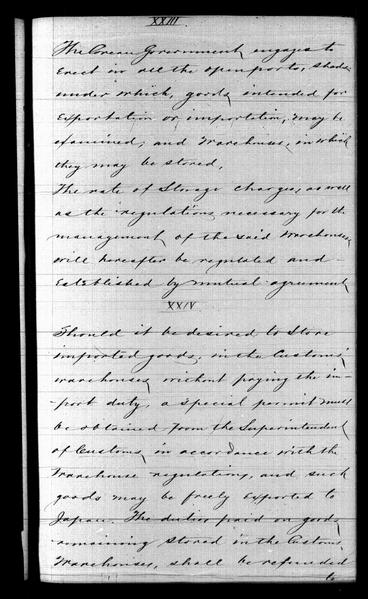 XXIII
The Corean Government, engages to
Erect in all the open ports, sheds
under which, goods, intended for
Exportation or importation, may be
examined, and Warehouses, in which
they may be stored,
The rate of Storage charges, as well
as the regulations necessary for the
management of the said Warehouses,
will hereafter be regulated and
Established by mutual agreement
XXIV
Should it be desired to Store
imported goods, in the Customs'
warehouses, without paying the im-
port duty, a special permit must
be obtained from the Superintendent
of Customs, in accordance with the
Warehouse regulations, and such
goods may be freely exported to
Japan. The duties paid on goods,
remaining stored in the Customs
Warehouses, shall be refunded
to